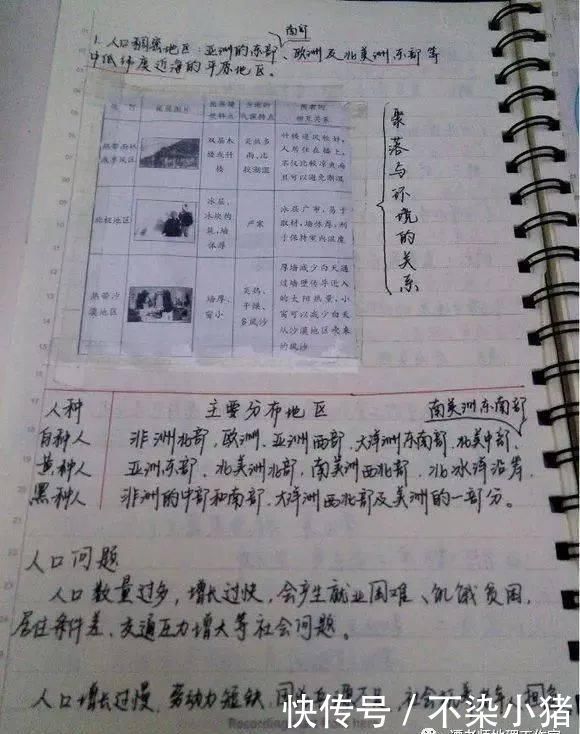 南部
1. 人口稠密地区：亚洲的东部、欧洲及北美洲东部等
中低纬度近海的平原地区。
聚落与环境的关系
热带雨林
或季风区
双层木
楼或竹
楼
炎热多
雨、比
较潮湿
竹楼通风较好，
人居住在楼上，
不仅比较凉爽而
且可以避免潮湿
北极地区
冰屋，
冰块构
筑，墙
体厚
严寒
冰层广布，易于
取材，墙体厚，利
于保持室内温度
热带沙
漠地区
墙厚、
窗小
炎热、
干燥、
多风沙
厚墙减少白天通
过墙壁传导进入
的太阳热量，小
窗可以减少白天
从沙漠地区吹来
的风沙
人种 主要分布地区 南美洲东南部
白种人 非洲北部，欧洲、亚洲西部、大洋洲东南部、北美中部、
黄种人 亚洲东部、北美洲北部，南美洲西北部、北冰洋沿岸，
黑种人 非洲的中部和南部、大洋洲西北部及美洲的一部分。
人口问题
人口数量过多，增长过快，会产生就业困难、饥饿贫困，
居住条件差、交通压力增大等社会问题。
人口增长过慢，劳动力短缺，
快传号 / 不染小猪